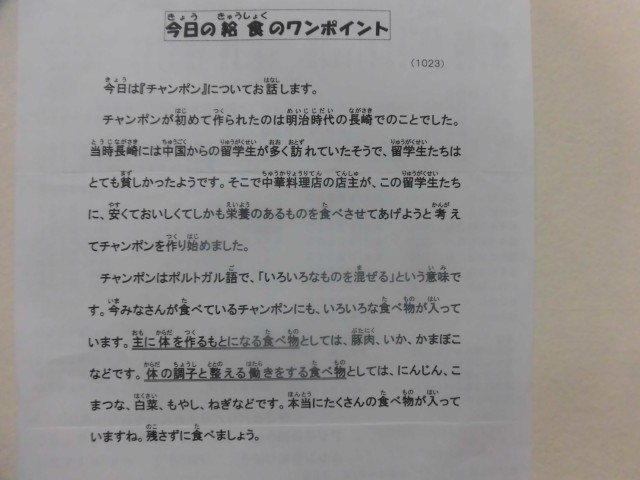 今日の給食のワンポイント
（1023）
今日は『チャンポン』についてお話します。
チャンポンが初めて作られたのは明治時代の長崎でのことでした。
当時長崎には中国からの留学生が多く訪れていたそうで、留学生たちは
とても貧しかったようです。そこで中華料理店の店主が、この留学生たち
に、安くておいしくてしかも栄養のあるものを食べさせてあげようと考え
てチャンポンを作り始めました。
チャンポンはポルトガル語で、「いろいろなものを混ぜる」という意味で
す。今みなさんが食べているチャンポンにも、いろいろな食べ物が入って
います。主に体を作るもとになる食べ物としては、豚肉、いか、かまぼこ
などです。体の調子と整える働きをする食べ物としては、にんじん、こ
まつな、白菜、もやし、ねぎなどです。本当にたくさんの食べ物が入って
いますね。残さずに食べましょう。